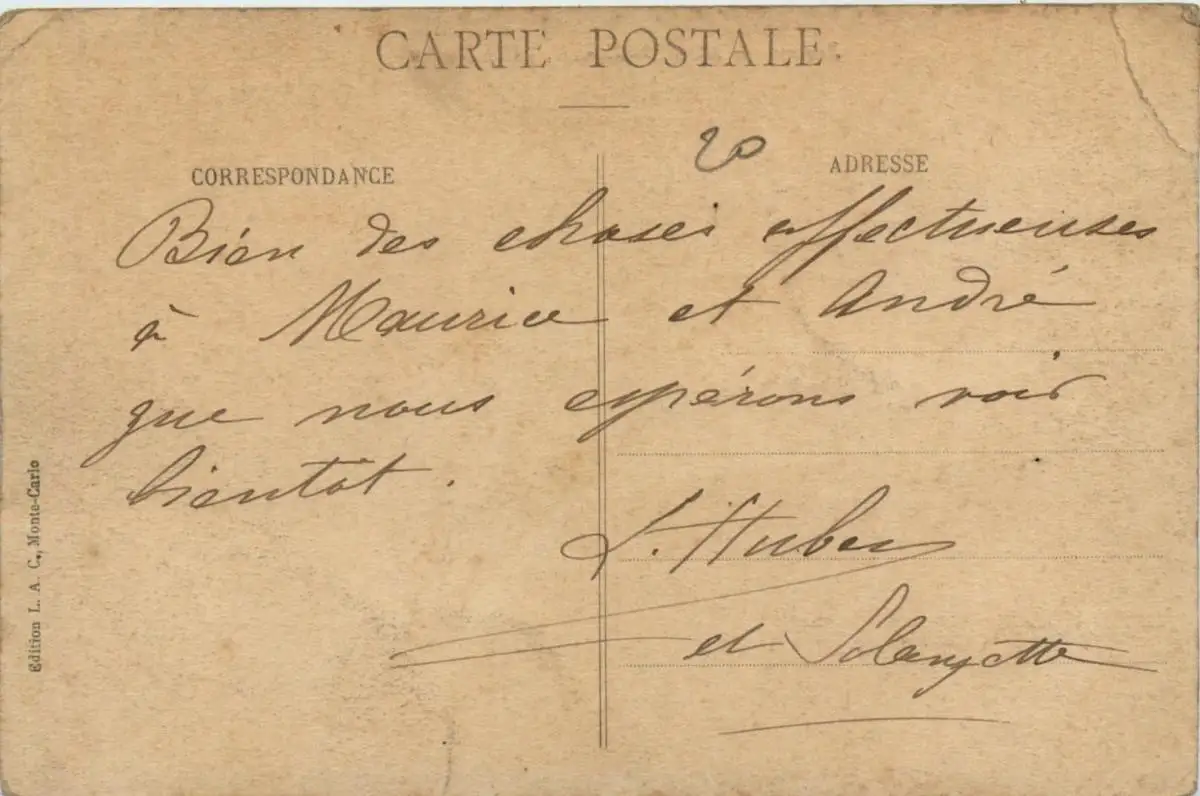 CARTE POSTALE
20
CORRESPONDANCE
ADRESSE
Bien des choses affectueuses
à Maurice et André
que nous espérons voir
bientôt.
et Solangette
Edition L. A. C., Monte-Carlo